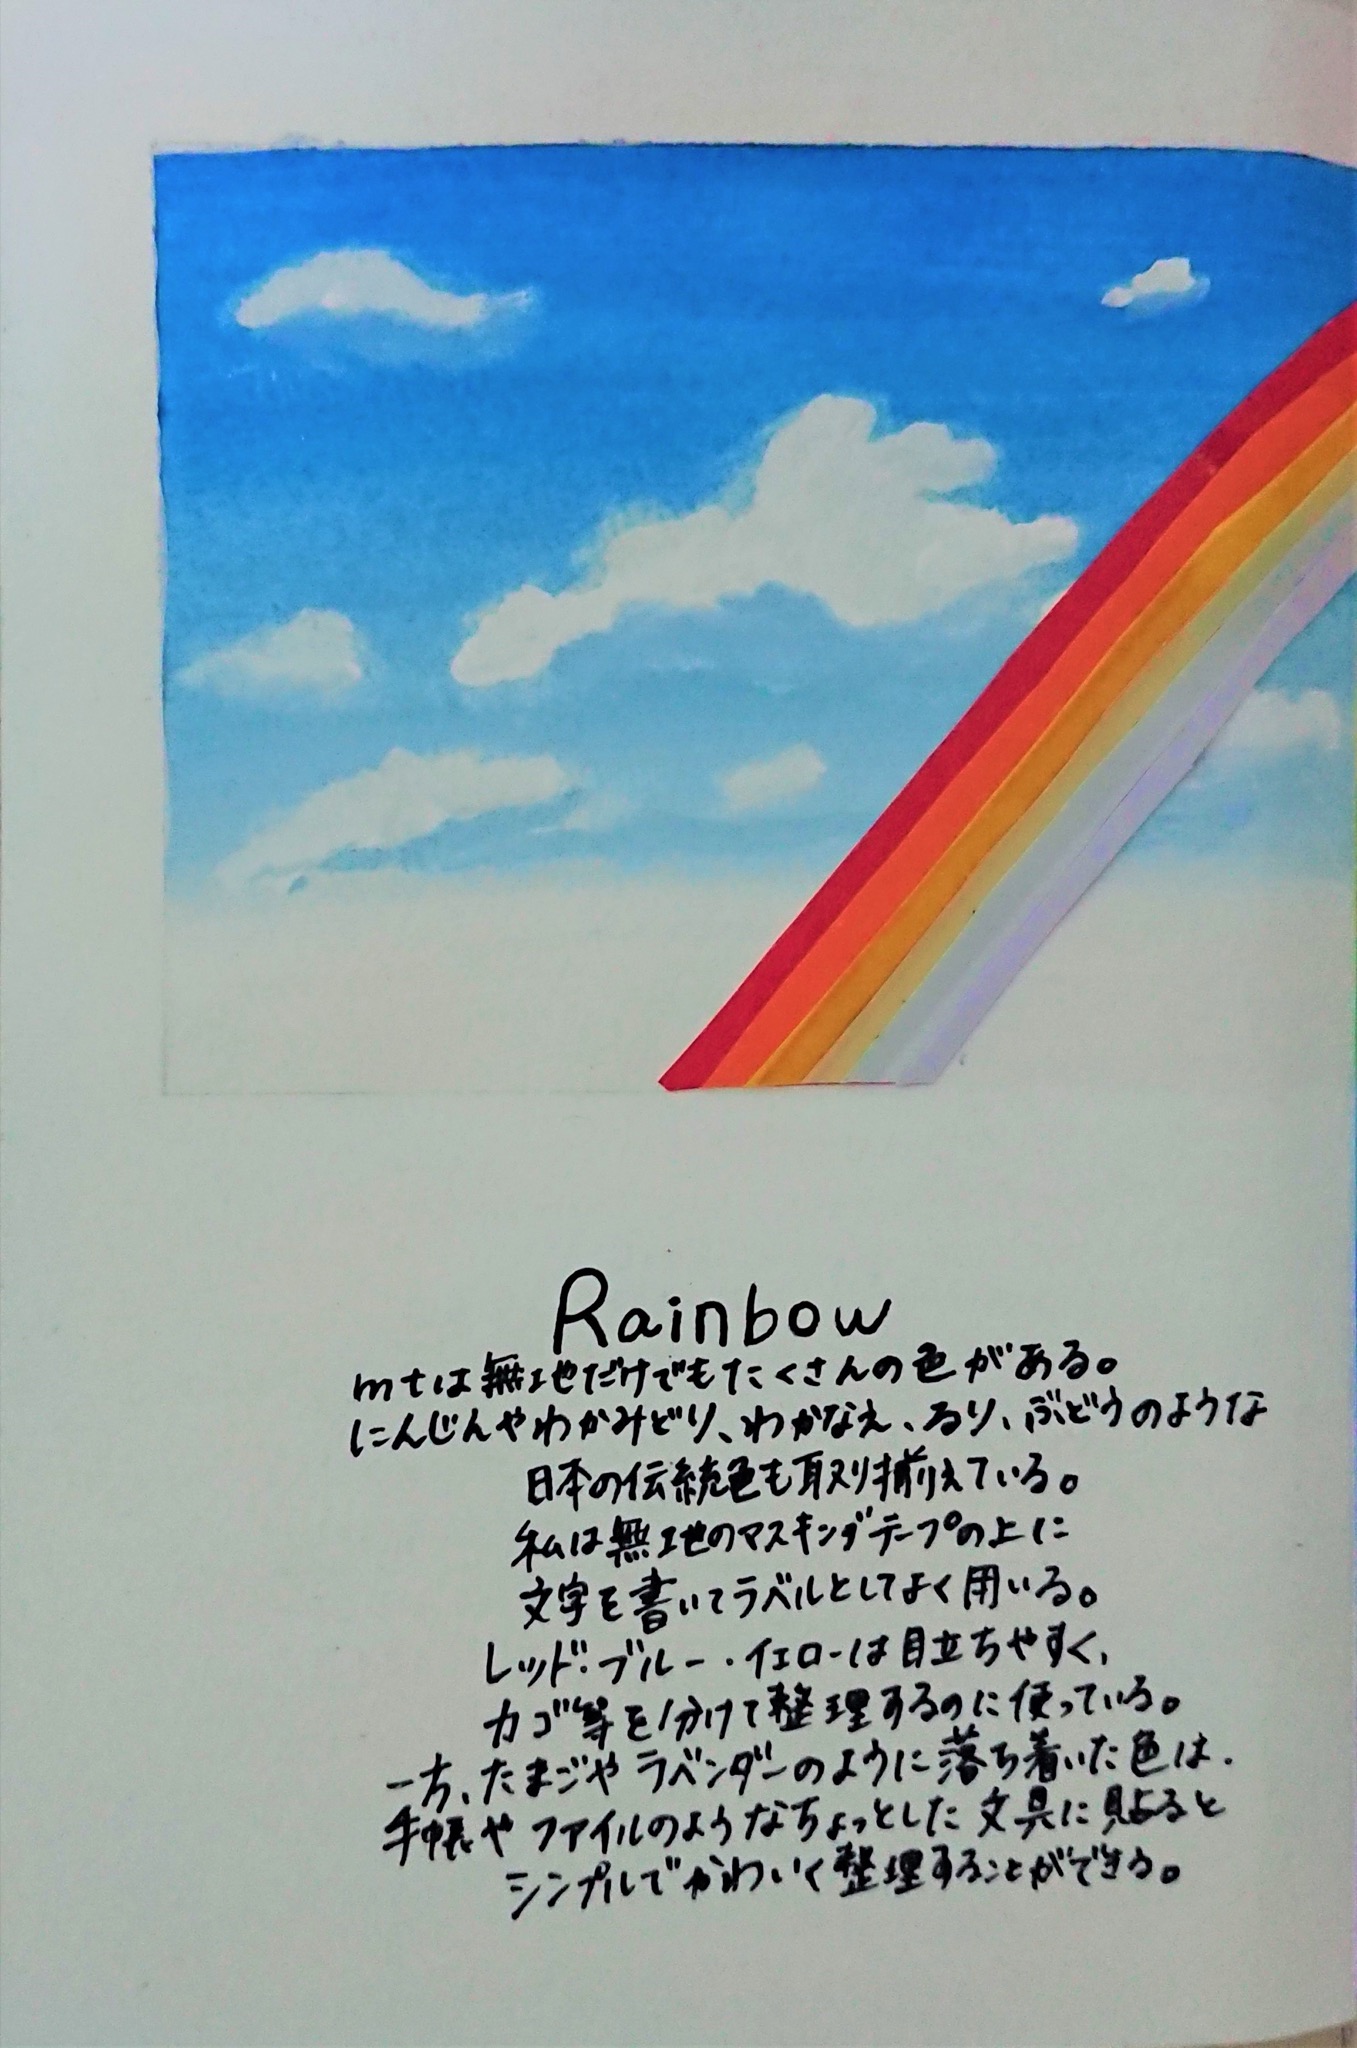 Rainbow
mtは無地だけでもたくさんの色がある。
にんじんやわかみどり、わかなえ、るり、ぶどうのような
日本の伝統色も取り揃えている。
私は無地のマスキングテープの上に
文字を書いてラベルとしてよく用いる。
レッド・ブルー・イエローは目立ちやすく、
カゴ等を分けて整理するのに使っている。
一方、たまごやラベンダーのように落ち着いた色は、
手帳やファイルのようなちょっとした文具に貼ると
シンプルでかわいく整理することができる。